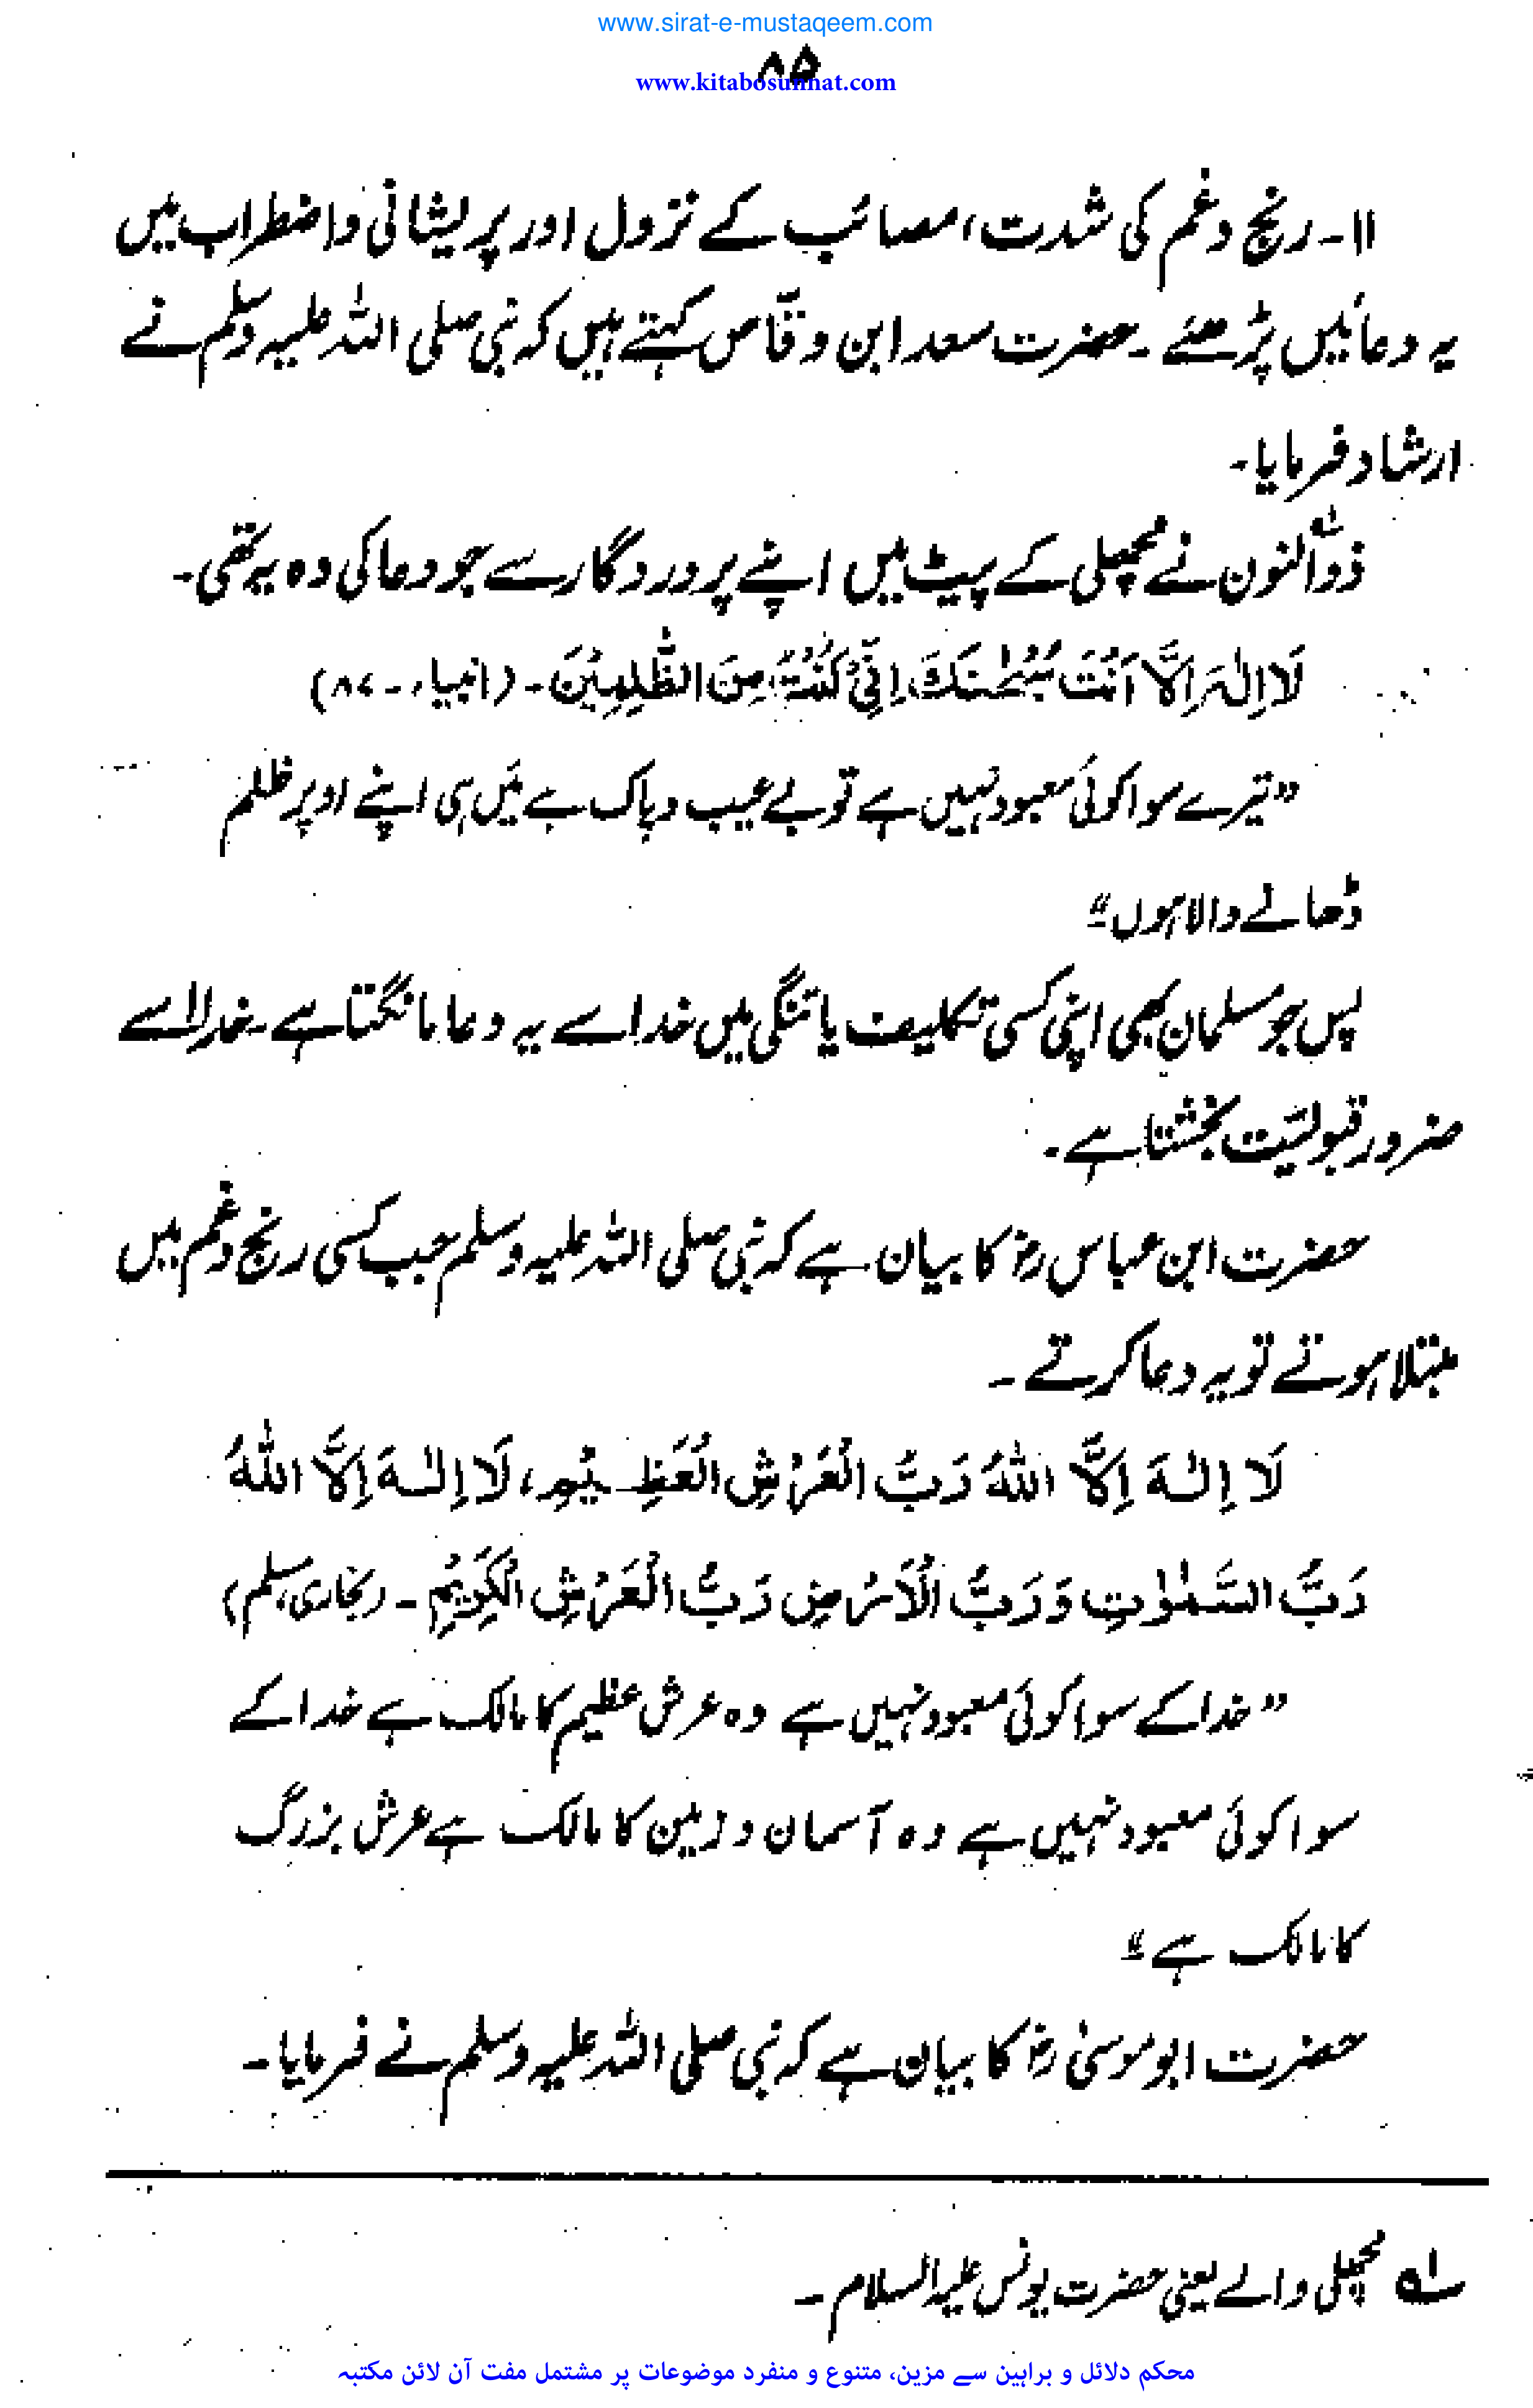 www.sirat-e-mustaqeem.com
۸۵
www.kitabosunnat.com
۱۱۔ رنج و غم کی شدت، مصائب کے نزول اور پریشانی و اضطراب میں
یہ دعائیں پڑھئے ۔ حضرت سعد ابن وقّاص کہتے ہیں کہ نبی صلی اللہ علیہ وسلم نے
ارشاد فرمایا۔
ذوالنون ؂۱ نے مچھلی کے پیٹ میں اپنے پروردگار سے جو دعا کی وہ یہ تھی۔
لَا اِلٰہَ اِلَّا اَنْتَ سُبْحٰنَکَ اِنِّیْ کُنْتُ مِنَ الظّٰلِمِیْنَ۔ (انبیاء۔ ۸۷)
”تیرے سوا کوئی معبود نہیں ہے تو بے عیب و پاک ہے مَیں ہی اپنے اوپر ظلم
ڈھانے والا ہوں“
پس جو مسلمان بھی اپنی کسی تکلیف یا تنگی میں خدا سے یہ دعا مانگتا ہے۔ خدا اسے
ضرور قبولیّت بخشتا ہے۔
حضرت ابن عباس رضؓ کا بیان ہے کہ نبی صلی اللہ علیہ وسلم جب کسی رنج و غم میں
مبتلا ہوتے تو یہ دعا کرتے ۔
لَا اِلٰہَ اِلَّا اللہُ رَبُّ الْعَرْشِ الْعَظِیْمِ، لَا اِلٰہَ اِلَّا اللہُ
رَبُّ السَّمٰوٰتِ وَرَبُّ الْاَرْضِ رَبُّ الْعَرْشِ الْکَرِیْمِ ۔ (بخاری، مسلم)
”خدا کے سوا کوئی معبود نہیں ہے وہ عرش عظیم کا مالک ہے خدا کے
سوا کوئی معبود نہیں ہے وہ آسمان و زمین کا مالک ہے عرش بزرگ
کا مالک ہے“
حضرت ابو موسیٰ رضؓ کا بیان ہے کہ نبی صلی اللہ علیہ وسلم نے فرمایا۔
؂۱ مچھلی والے یعنی حضرت یونس علیہ السلام ۔
محکم دلائل و براہین سے مزین، متنوع و منفرد موضوعات پر مشتمل مفت آن لائن مکتبہ